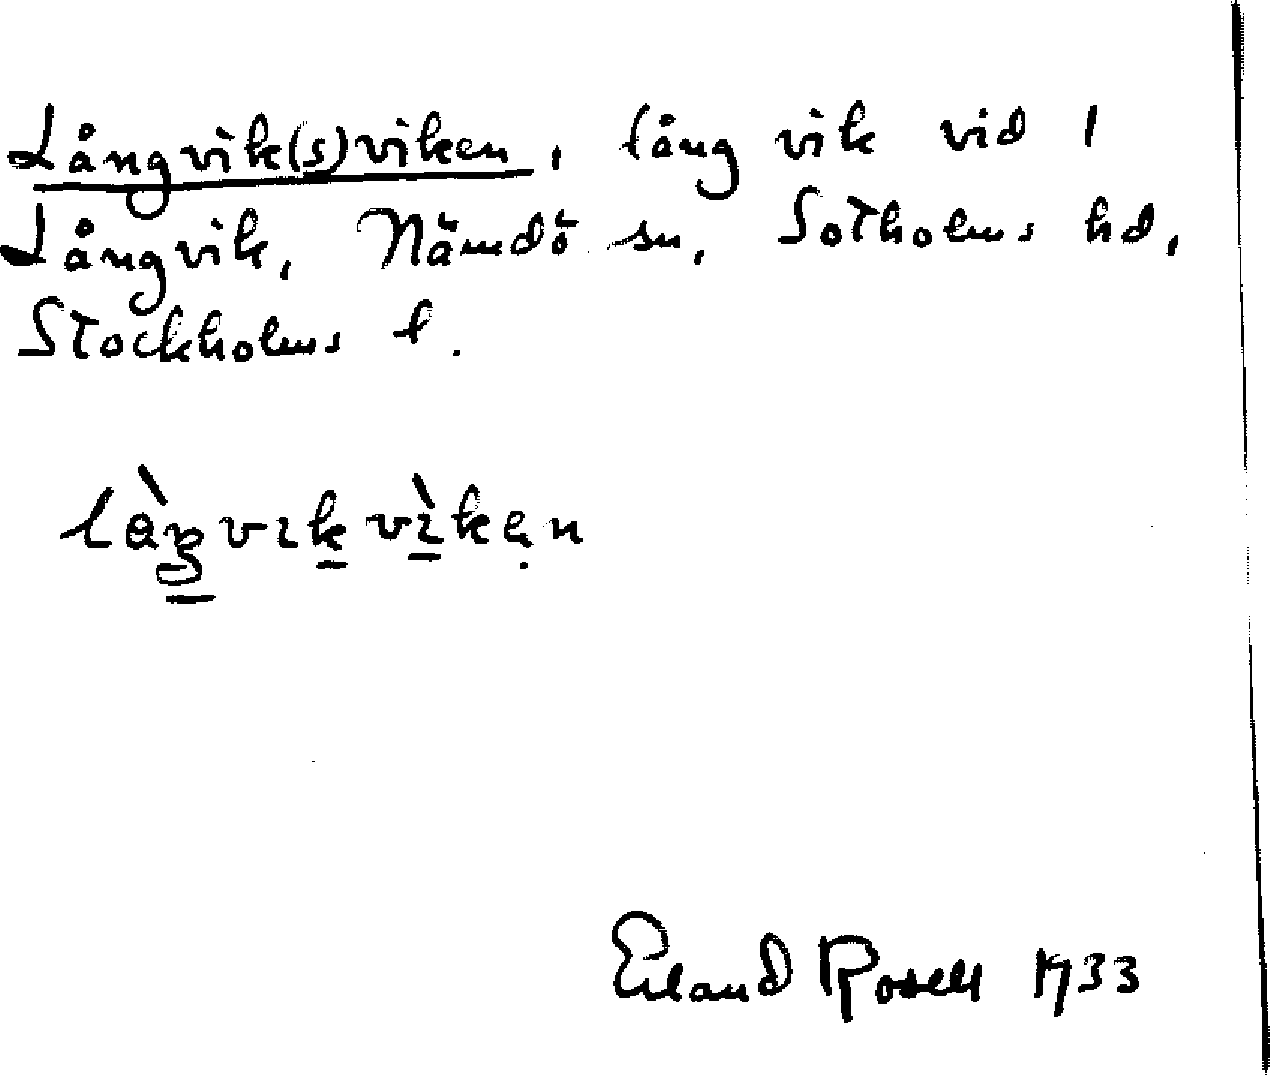 Långvik(s)viken, lång vik vid l
Långvik, Nämdö sn, Sotholms hd,
Stockholms l.
Erland Rosell 1933